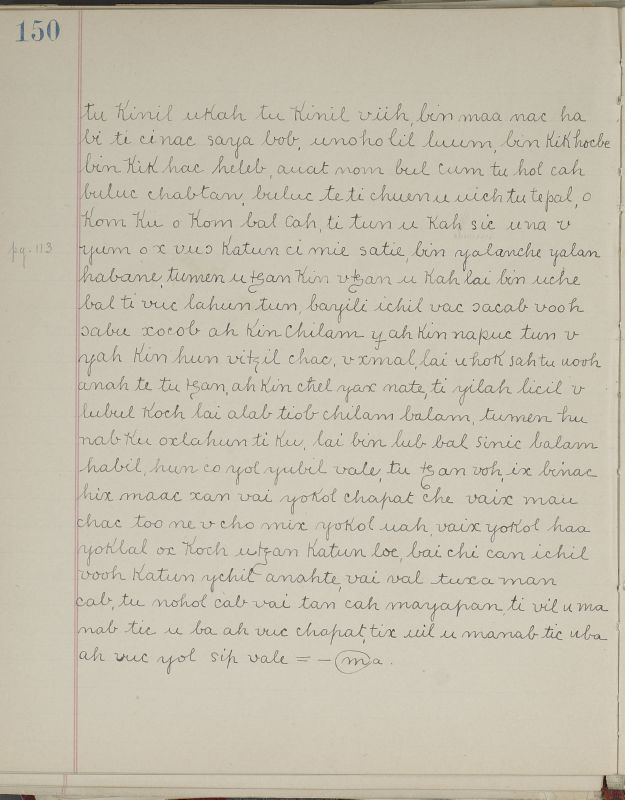 150
tu Kinil uKah tu Kinil viih, bin maa nac ha
bi ti cinac saya bob, unoho lil luum, bin KiK hocbe
bin KiK hac heleb, auat nom bul cum tu hol cah
buluc chabtan, buluc te ti chuen u uich tu tepal, o
Kom Ku o Kom bal cah, ti tun u Kah sic una v
yum ox vuɔ Katun ci mie satie, bin yalanche yalan
pg. 113
habane, tumen u ꜩan Kin vꜩan u Kah lai bin uche
bal ti vuc lahun tun, bayili ichil vac ɔacab vooh
sabu xocob ah Kin Chilam y ah Kin napuc tun v
yah Kin hun vitꜩil chac, vxmal, lai uhoKsah tu uooh
anah te tu ꜩan, ah Kin chel yax nate, ti yilah licil v
lubul Koch lai alab tiob chilam balam, tumen hu
nab Ku oxlahun ti Ku, lai bin lub bal sinic balam
habil, hun co yol yubil vale, tu ꜩan voh, ix binac
hix maac xan vai yoKol chapat che vaix mau
chac too ne v cho mix yoKol uah, vaix yoKol haa
yoKlal ox Koch uꜩan Katun loe, bai chi can ichil
vooh Katun ychil anahte, vai val tuxa man
cab, tu nohol cab vai tan cah mayapan, ti vil u ma
nab tic u ba ah vuc chapat, tix uil u manab tic uba
ah vuc yol sip vale = - ma.